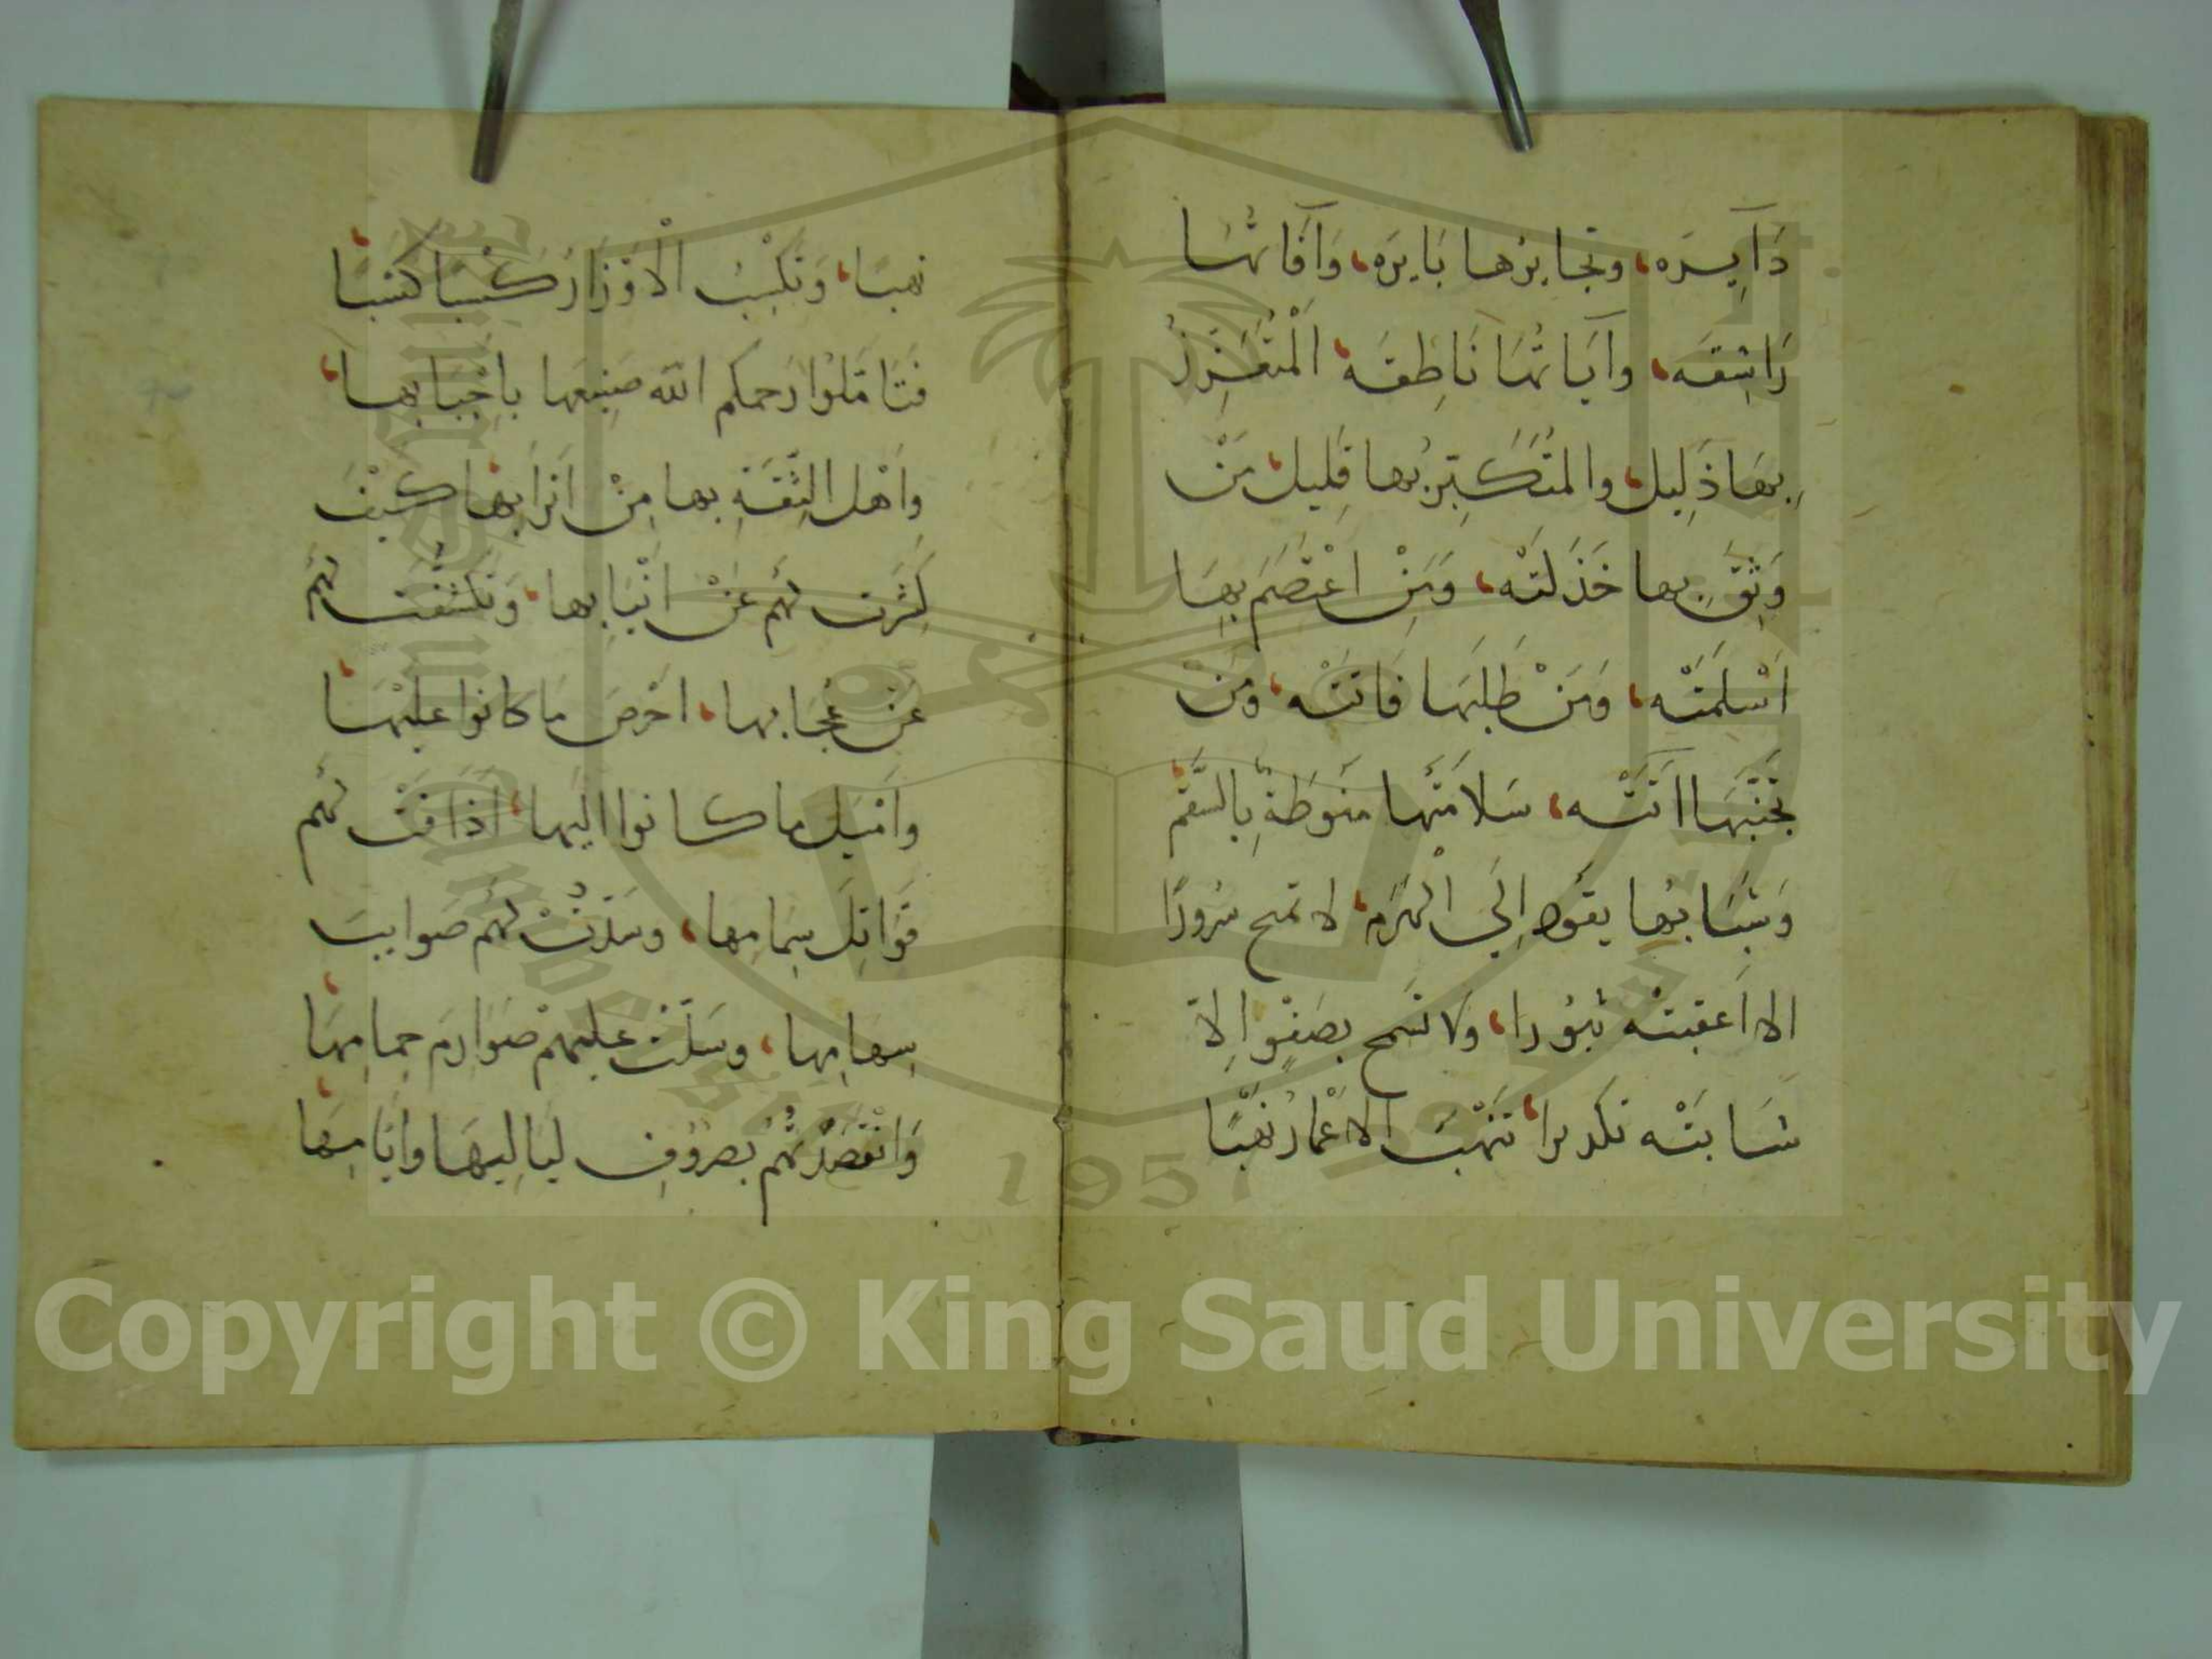 دَآيِسرَه، وتجايرُها بَايرَه، وَآفَاتُهَا
رَاشِقَه، وآيَاتُهَا نَاطِقَه، الْمُتَعَزِّزُ
بِهَا ذَلِيل، والمُتَكَبِّرُ بها قَلِيل، مَنْ
وَثِقَ بِها خَذَلَتْه، وَمَنْ اعْتَصَمَ بِهَا
اَسْلَمَتْه، وَمَنْ طَلَبَهَا فَاتَتْه، ومَن
تَجَنَّبَهَا اَتَتْه، سَلامَتُها مَنوطَةٌ بِالسَّقَم
وَشَبَابُها يقود اِلَى الْهَرَم، لا تمنح سُرورًا
الا اَعقبته ثبُورا، ولا تسمح بصَفْوٍ اِلاّ
شَابَتْه تكديرا، تَنْهَبُ الاعْمَارَ نَهْبًا
نهبَا، وَتكْسِبُ الْاَوْزَارَ كَسْبَا كَسْبَا
فَتَامَّلوُا رَحمكم الله صَنِيعَها بِاَحْبَابِها،
وَاَهْل الثِّقَةِ بها مِنْ اَتْرَابِها، كَيْفَ
كَشَّرَتْ لَهُم عَنْ اَنْيَابِها، وَتَكَشَّفَتْ لَهُمْ
عَن عُجَابِها، احْرَصَ مَا كانوا عليْهَا،
وَاَمْيَل ما كانوا اليها، اَذَاقَتْ لَهُم
قَوَاتِلَ سِمَامِها، وسَدَّدَتْ لَهُم صَوايبَ
سِهَامِها، وسَلَّتْ عليهمْ صَوَارِمَ حِمَامِهَا،
وَاَقْصَدَتْهُم بصُروُفِ لَيَالِيهَا وَاَيَّامِهَا
Copyright © King Saud University
1957